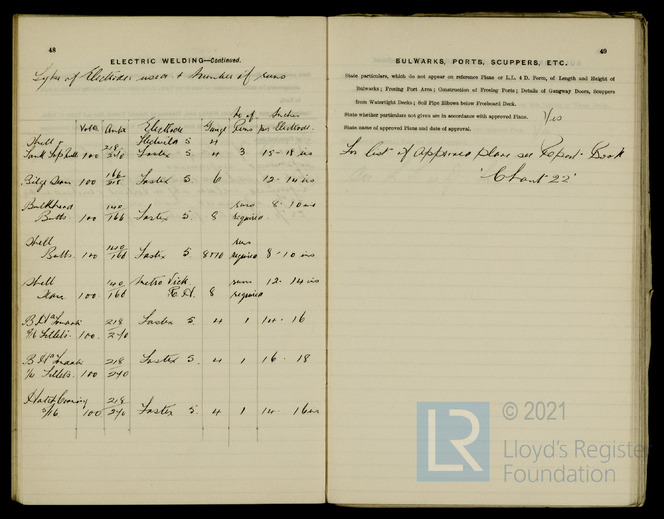 48
ELECTRIC WELDING—Continued.
Types of Electrodes used + Number of runs
No of Inches
Volts Amps Electrode Gauge Runs per Electrode.
Shell + 218 5 4
Tank Top Butts 100 240 Fastex 5 4 3 15-18 ins
Bilge 100 166 218 Fastex 5 6 12-14 ins
Bulkhead 140 runs 8-10 ins
Butts 100 166 Fastex 5. 8 required
Shell 140 runs
Butts 100 166 Fastex 5 8+10 required 8-10 ins
Shell 140 Metro Vick runs 12-14 ins
100 166 8 required
218 Fastex 5. 4 1 14-16
Fillets. 100. 240
218 Fastex 5. 4 1 16-18
Fillets. 100 240
218
100 240 Fastex 5. 4 1 14-16 ins
49
BULWARKS, PORTS, SCUPPERS, ETC.
State particulars, which do not appear on reference Plans or L.L. 4 D. Form, of Length and Height of
Bulwarks; Freeing Port Area; Construction of Freeing Ports; Details of Gangway Doors, Scuppers
from Watertight Decks; Soil Pipe Elbows below Freeboard Deck.
State whether particulars not given are in accordance with approved Plans. Yes
State name of approved Plans and date of approval.
For list of approved plans see Report Book
'Chant 22'
LR
© 2021
Lloyd's Register
Foundation